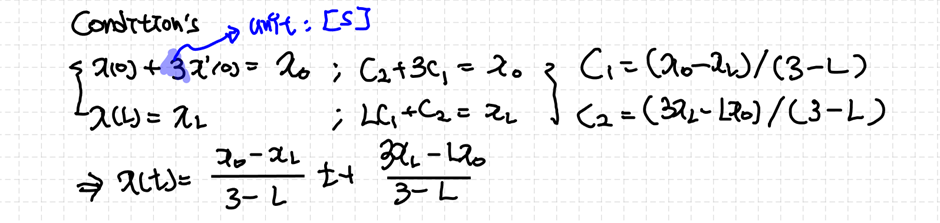 Condition's → unit : [s]
{ x(0) + 3x'(0) = x₀ ; C₂+3C₁ = x₀ } C₁ = (x₀-x_L)/(3-L)
x(L) = x_L ; LC₁+C₂ = x_L C₂ = (3x_L-Lx₀)/(3-L)
⇒ x(t) = \frac{x₀-x_L}{3-L} t + \frac{3x_L-Lx₀}{3-L}